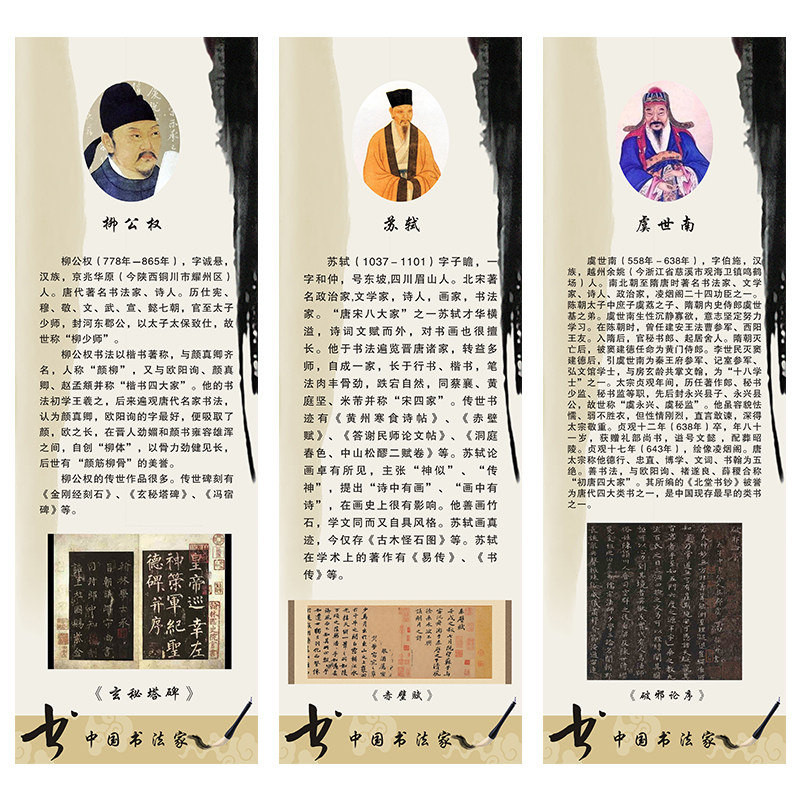 柳公权
柳公权（778年—865年），字诚悬，
汉族，京兆华原（今陕西铜川市耀州区）
人。唐代著名书法家、诗人。历仕宪、
穆、敬、文、武、宣、懿七朝，官至太子
少师，封河东郡公，以太子太保致仕，故
世称“柳少师”。
柳公权书法以楷书著称，与颜真卿齐
名，人称“颜柳”，又与欧阳询、颜真
卿、赵孟頫并称“楷书四大家”。他的书
法初学王羲之，后来遍观唐代名家书法，
认为颜真卿，欧阳询的字最好，便吸取了
颜，欧之长，在晋人劲媚和颜书雍容雄浑
之间，自创“柳体”，以骨力劲健见长，
后世有“颜筋柳骨”的美誉。
柳公权的传世作品很多。传世碑刻有
《金刚经刻石》、《玄秘塔碑》、《冯宿
碑》等。
皇帝巡幸左
神策军纪圣
德碑并序
翰林学士承
《玄秘塔碑》
书 中国书法家
苏轼
苏轼（1037－1101）字子瞻，一
字和仲，号东坡,四川眉山人。北宋著
名政治家,文学家，诗人，画家，书法
家。“唐宋八大家”之一苏轼才华横
溢，诗词文赋而外，对书画也很擅
长。他于书法遍览晋唐诸家，转益多
师，自成一家，长于行书、楷书，笔
法肉丰骨劲，跌宕自然，同蔡襄、黄
庭坚、米芾并称“宋四家”。传世书
迹有《黄州寒食诗帖》、《赤壁
赋》、《答谢民师论文帖》、《洞庭
春色、中山松醪二赋卷》等。苏轼论
画卓有所见，主张“神似”、“传
神”，提出“诗中有画”、“画中有
诗”，在画史上很有影响。他善画竹
石，学文同而又自具风格。苏轼画真
迹，今仅存《古木怪石图》等。苏轼
在学术上的著作有《易传》、《书
传》等。
赤壁赋
《赤壁赋》
书 中国书法家
虞世南
虞世南（558年－638年），字伯施，汉
族，越州余姚（今浙江省慈溪市观海卫镇鸣鹤
场）人。南北朝至隋唐时著名书法家、文学
家、诗人、政治家，凌烟阁二十四功臣之一。
陈朝太子中庶子虞荔之子、隋朝内史侍郎虞世
基之弟。虞世南生性沉静寡欲，意志坚定努力
学习。在陈朝时，曾任建安王法曹参军、西阳
王友。入隋后，官秘书郎、起居舍人。隋朝灭
亡后，被窦建德任命为黄门侍郎。李世民灭窦
建德后，引虞世南为秦王府参军、记室参军、
弘文馆学士，与房玄龄共掌文翰，为“十八学
士”之一。太宗贞观年间，历任著作郎、秘书
少监、秘书监等职，先后封永兴县子、永兴县
公，故世称“虞永兴、虞秘监”。他虽容貌怯
懦、弱不胜衣，但性情刚烈，直言敢谏，深得
太宗敬重。贞观十二年（638年）卒，年八十
一岁，获赠礼部尚书，谥号文懿，配葬昭
陵。贞观十七年（643年），绘像凌烟阁。唐
太宗称他德行、忠直、博学、文词、书翰为五
绝。善书法，与欧阳询、褚遂良、薛稷合称
“初唐四大家”。其所编的《北堂书钞》被誉
为唐代四大类书之一，是中国现存最早的类书
之一。
《破邪论序》
书 中国书法家